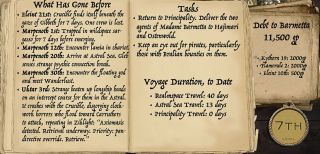 What Has Gone Before
Eleint 21st: Crucible finds itself beneath the
gaze of Gibbeth for 7 days. One crew is lost.
Marpenoth 1st: Trapped in wildspace sar-
gasso for 7 days before emerging.
Marpenoth 12th: Encounter lamia in chariot.
Marpenoth 20th: Arrive at Astral Sea. Giel
senses strange psychic communion break.
Marpenoth 30th: Encounter the floating god
and meet Wanderlust.
Uktar 3rd: Strange beasts go lunging heads
on an intercept course for them in the Astral.
It crashes with the Crucible, disgorging clock-
work horrors who flood toward
to attack, repeating in "Automata
detected. Retrieval underway. Priority: pan-
directive override. Retrieve."
Tasks
• Return to Principality. Deliver the two
agents of Madame Barnetta to Hajimari
and Ostermold.
• Keep an eye out for pirates, particularly
those with Realian bounties on them.
Voyage Duration, to Date
• Realmspace Travel: 40 days
• Astral Sea Travel: 13 days
• Principality Travel: 0 days
Debt to Barnetta
11,500 gp
Kythorn 19: 2000g
Flamerule 2: 2000g
Eleint 10th: 500g
7TH